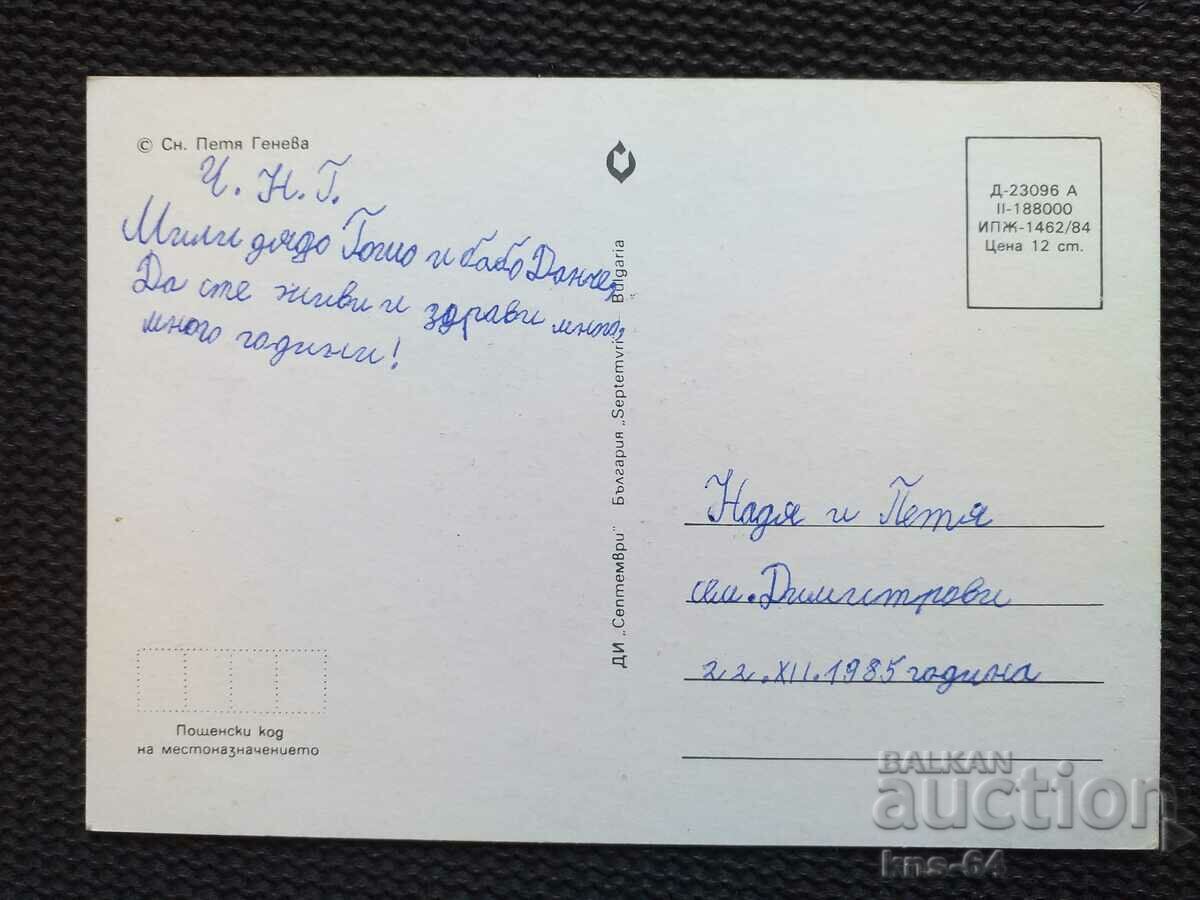 © Сн. Петя Генева
Ч. Н. Г.
Мили дядо Гошо и бабо Данче,
Да сте живи и здрави много,
много години!
Пощенски код
на местоназначението
ДИ „Септември" България „Septemvri" Bulgaria
Д-23096 А
II-188000
ИПЖ-1462/84
Цена 12 ст.
Надя и Петя
сем. Димитрови
22.XII.1985 година
BALKAN
auction
kns-64